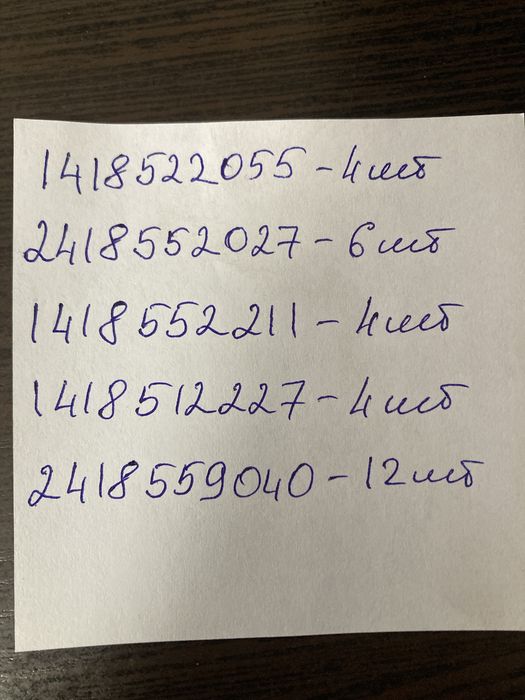 1418522055 - 4 шт
2418552027 - 6 шт
1418552211 - 4 шт
1418512227 - 4 шт
2418559040 - 12 шт